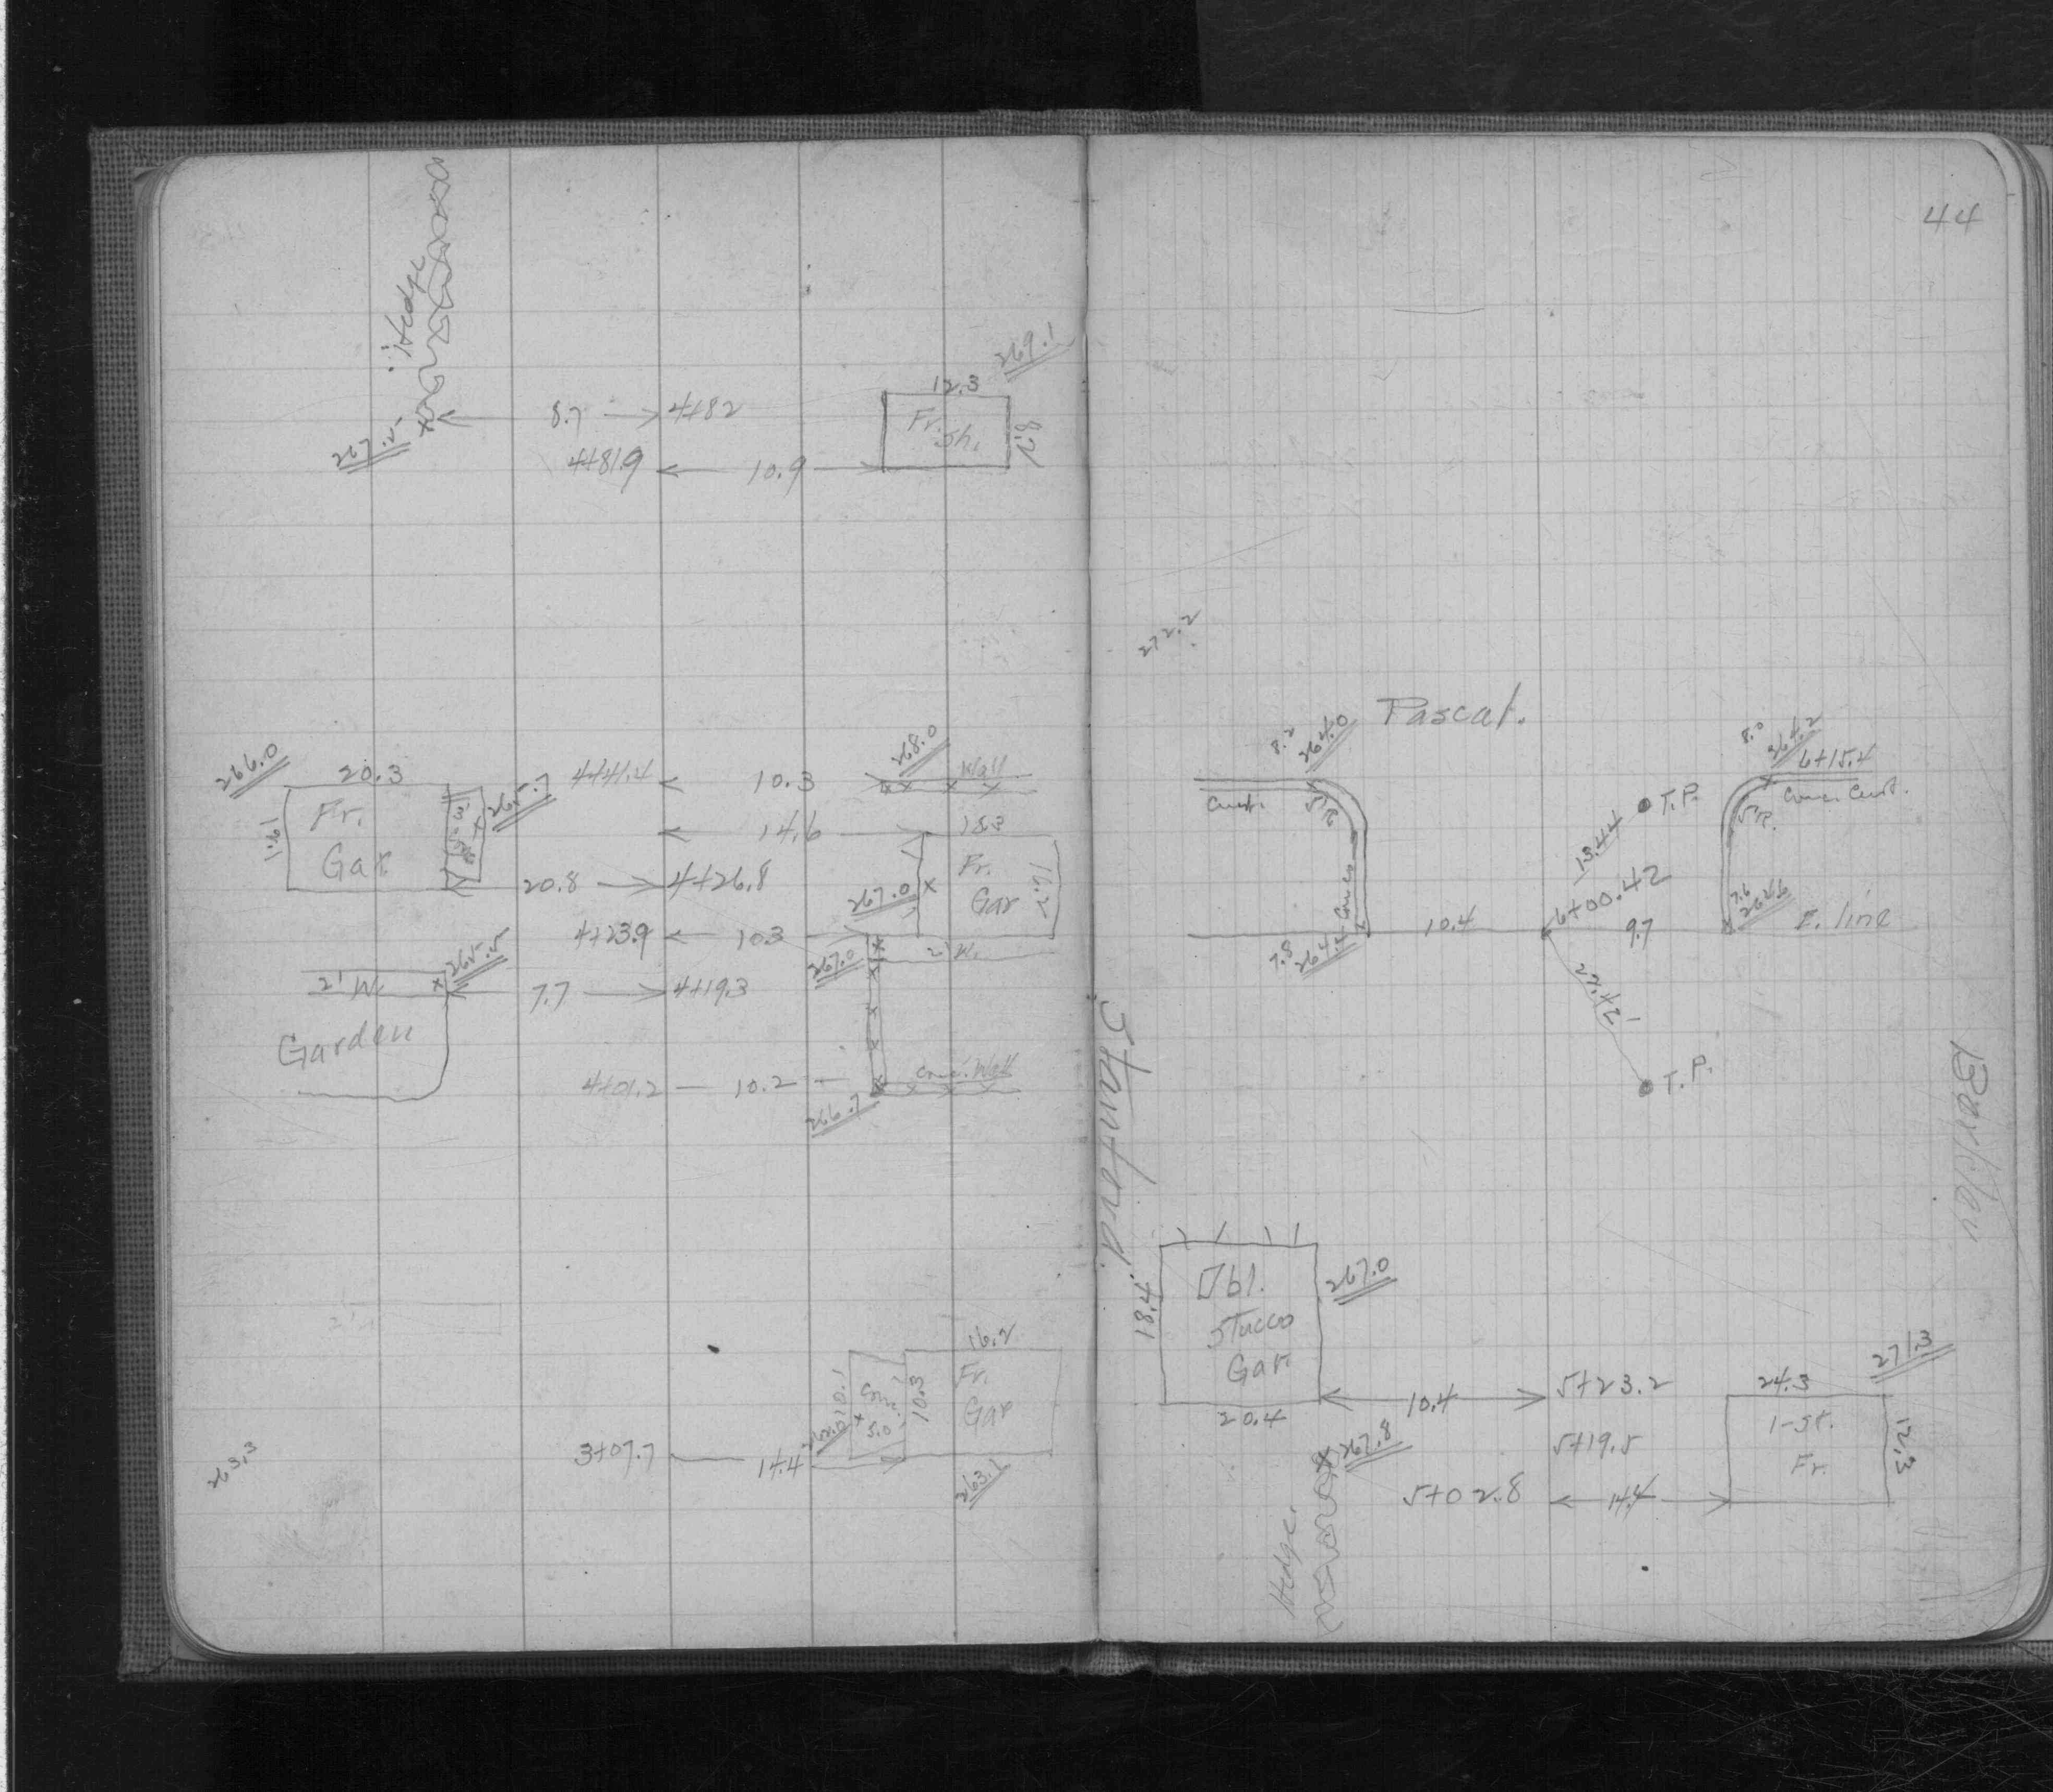 Hedge
269.1
12.3
8.7 4+82
Fr.
Sh.
8.2
267.2
4+81.9 10.9
266.0
20.3
4+41.4 10.3
268.0
Wall
265.7
Fr.
Gar
19.1
14.6
18.3
20.8 4+26.8
267.0
Fr.
Gar
16.2
4+23.9 10.3
2' W.
267.0
265.5
2' W.
7.7 4+19.3
Garden
4+01.2 10.2
Conc. Wall
266.7
16.2
Fr.
Gar
10.3
10.1
5.0
262.0
3+07.7 14.4
263.1
263.3
44
272.2
Pascal.
8.2
264.0
8.0
264.2
6+15.4
Curb.
5'R.
T.P.
Conc. Curb.
5'R.
13.44
6+00.42
Conc
10.4
9.7
7.6
264.6
E. line
7.8
264.4
22.42
T.P.
Stanford.
Barkley
Dbl.
Stucco
Gar.
18.4
267.0
20.4
10.4 5+23.2
271.3
24.3
1-St.
Fr.
12.3
267.8
5+19.5
5+02.8 14.4
Hedge.